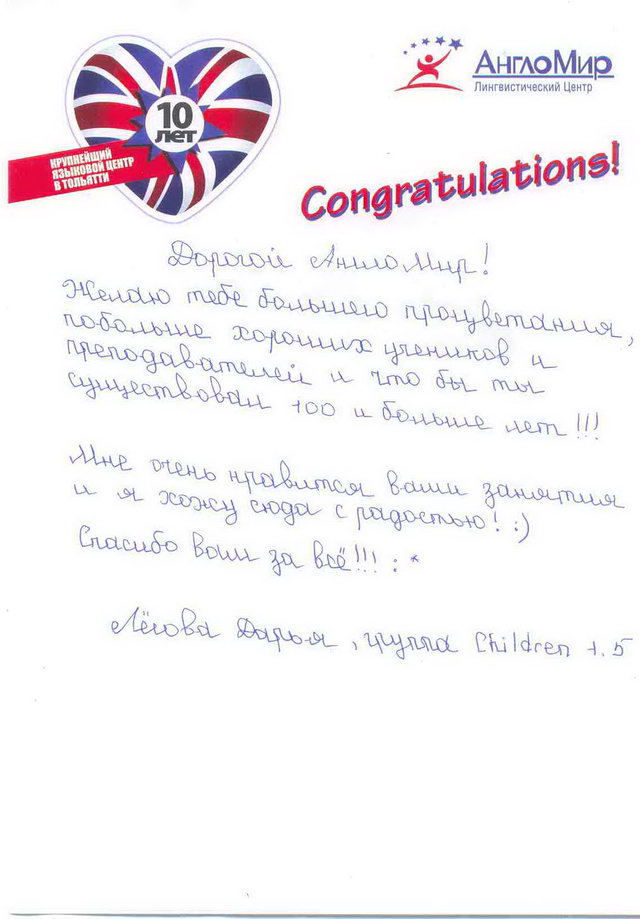 10
ЛЕТ
КРУПНЕЙШИЙ
ЯЗЫКОВОЙ ЦЕНТР
В ТОЛЬЯТТИ
АнглоМир
Лингвистический Центр
Congratulations!
Дорогой АнглоМир!
Желаю тебе большего процветания,
побольше хороших учеников и
преподавателей и что бы ты
существовал 100 и больше лет!!!
Мне очень нравится ваши занятия
и я хожу сюда с радостью! :)
Спасибо вам за всё!!! :*
Лёгова Дарья, группа Children 1.5